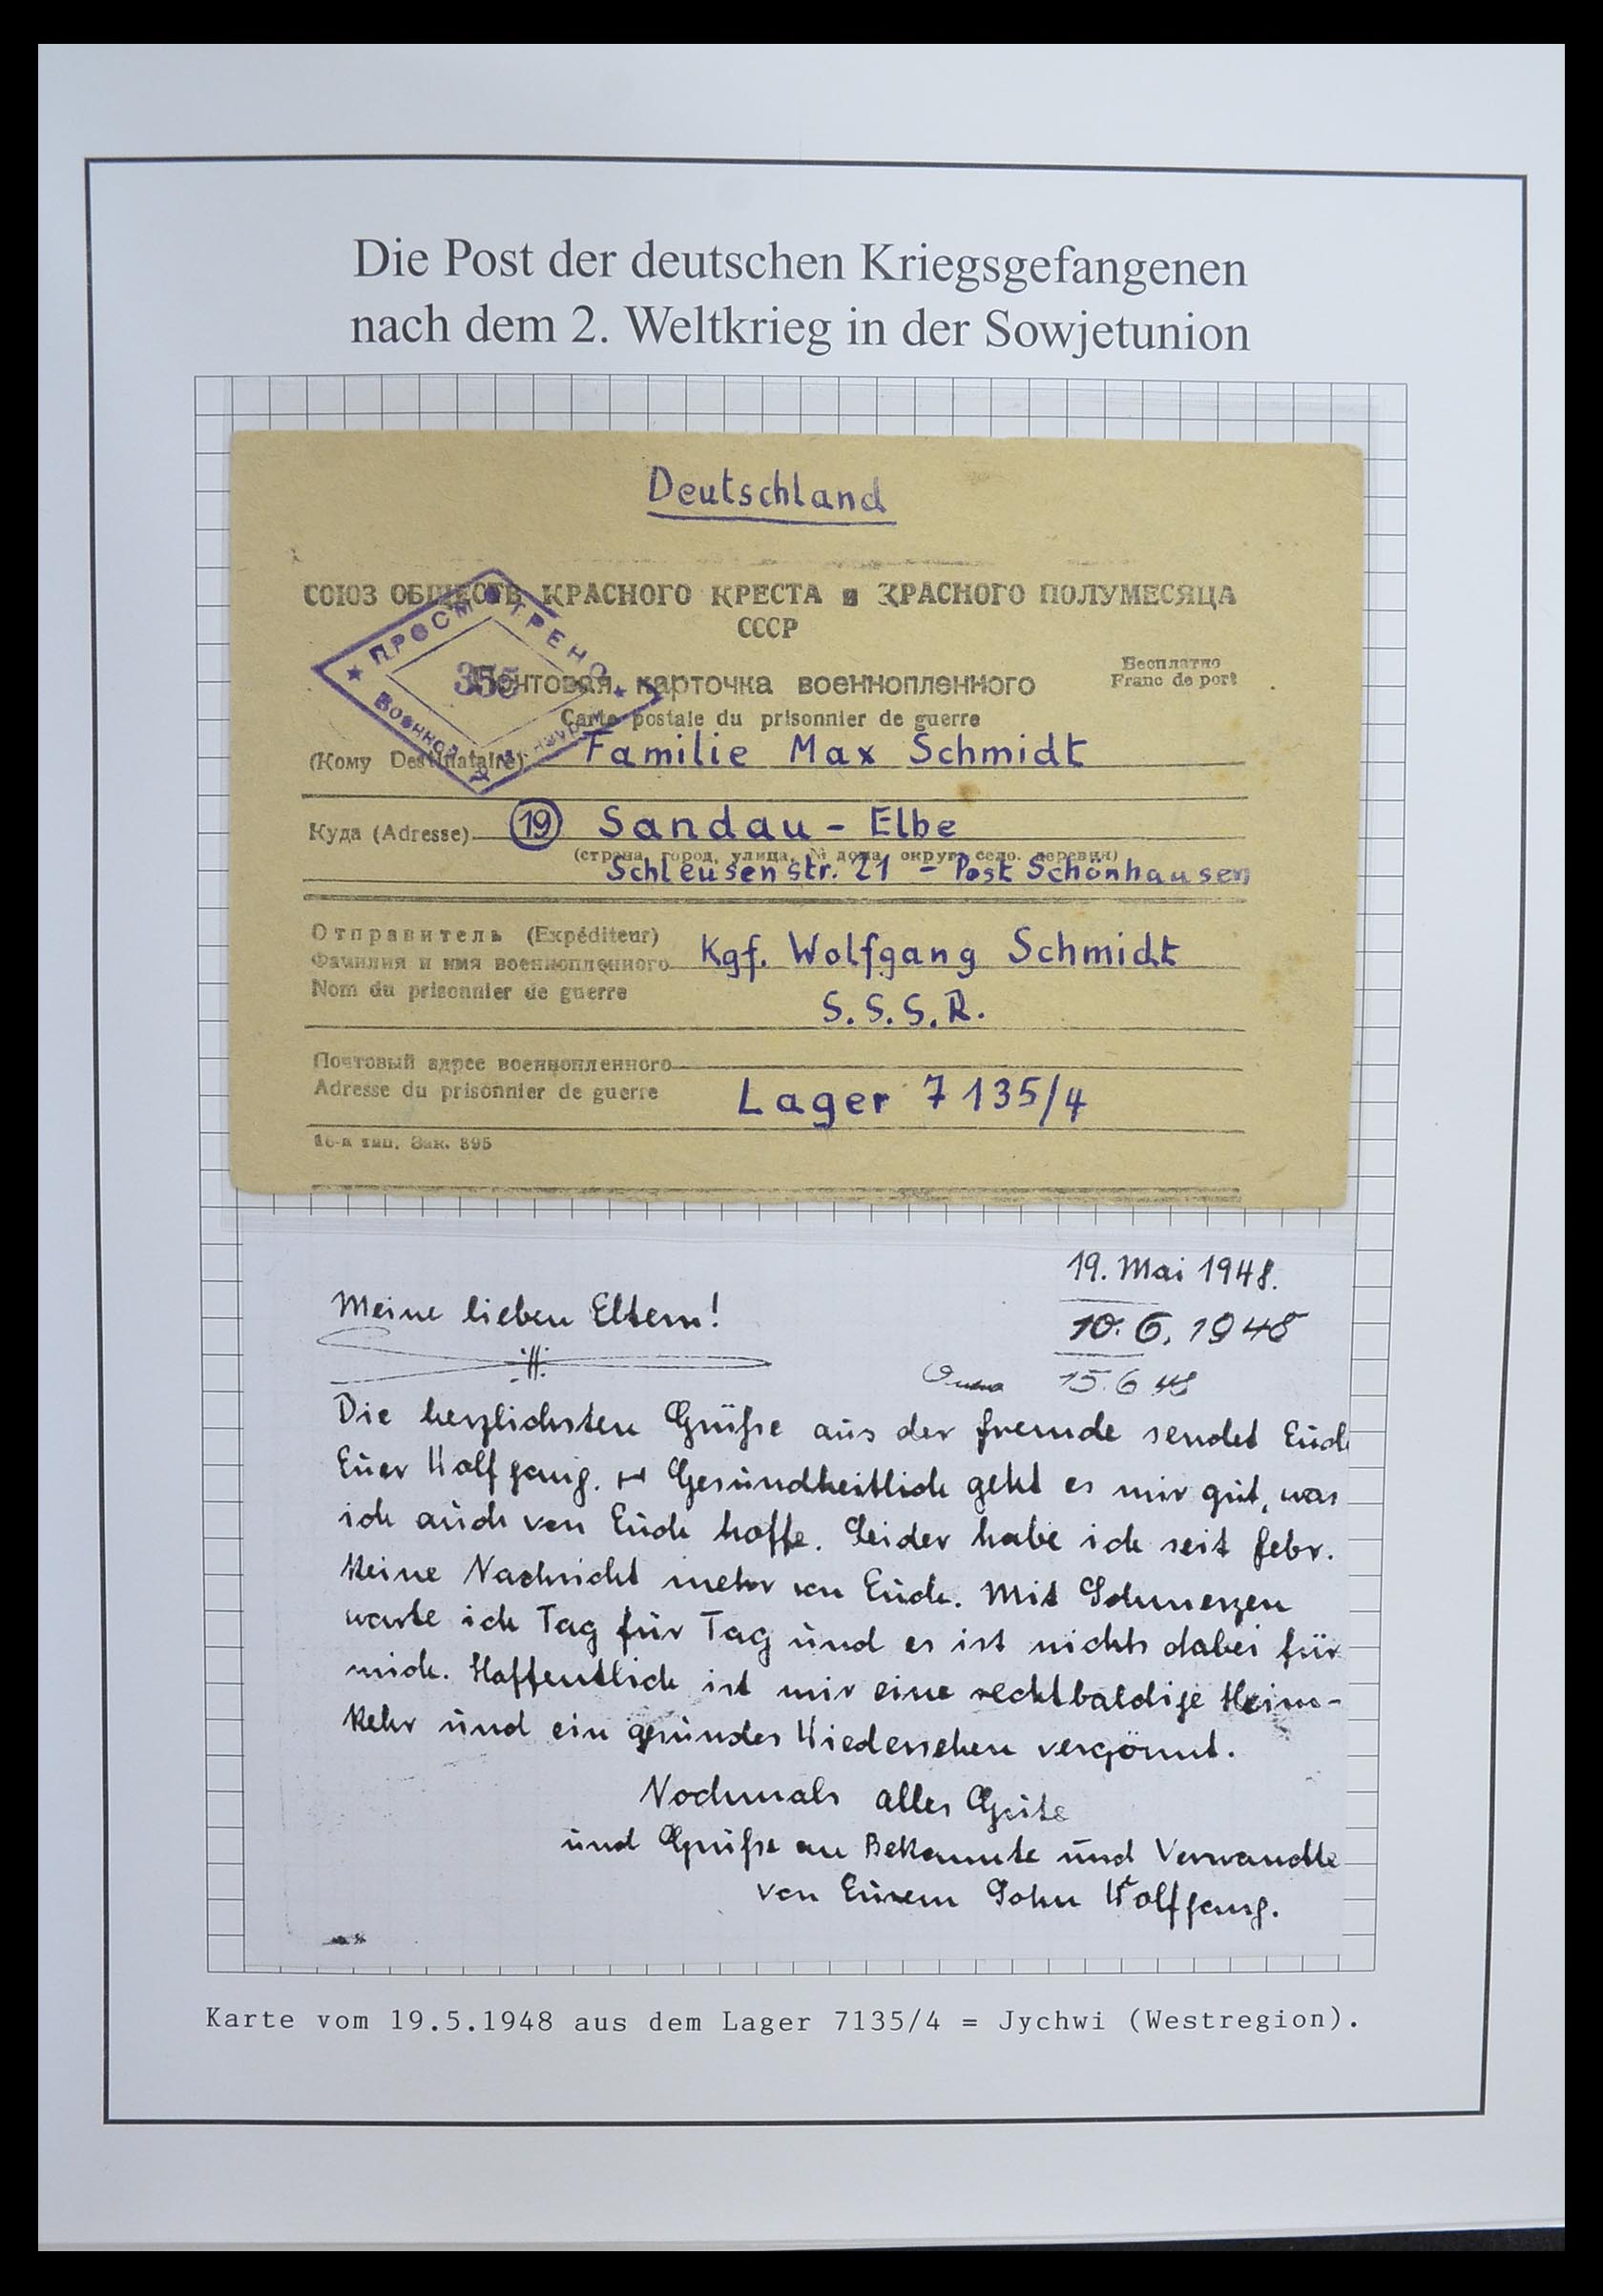 Die Post der deutschen Kriegsgefangenen
nach dem 2. Weltkrieg in der Sowjetunion
Deutschland
СОЮЗ ОБЩЕСТВ КРАСНОГО КРЕСТА и КРАСНОГО ПОЛУМЕСЯЦА
СССР
ПРОСМОТРЕНО
355
Военной
Почтовая карточка военнопленного
Бесплатно
Franc de port
Carte postale du prisonnier de guerre
(Кому Destinataire) Familie Max Schmidt
Куда (Adresse) 19 Sandau - Elbe
(страна, город, улица, № дома, округ, село, деревня)
Schleusenstr. 21 - Post Schönhausen
Отправитель (Expéditeur)
Фамилия и имя военнопленного Kgf. Wolfgang Schmidt
Nom du prisonnier de guerre
S.S.S.R.
Почтовый адрес военнопленного
Adresse du prisonnier de guerre Lager 7135/4
16-я тип. Зак. 895
19. Mai 1948.
Meine lieben Eltern!
10.6.1948
15.6 48
Die herzlichsten Grüße aus der Fremde sendet Euch
Euer Wolfgang. Gesundheitlich geht es mir gut, was
ich auch von Euch hoffe. Leider habe ich seit Febr.
keine Nachricht mehr von Euch. Mit Schmerzen
warte ich Tag für Tag und es ist nichts dabei für
mich. Hoffentlich ist mir eine rechtbaldige Heim-
kehr und ein gesundes Wiedersehen vergönnt.
Nochmals alles Gute
und Grüße an Bekannte und Verwandte
von Eurem Sohn Wolfgang.
Karte vom 19.5.1948 aus dem Lager 7135/4 = Jychwi (Westregion).